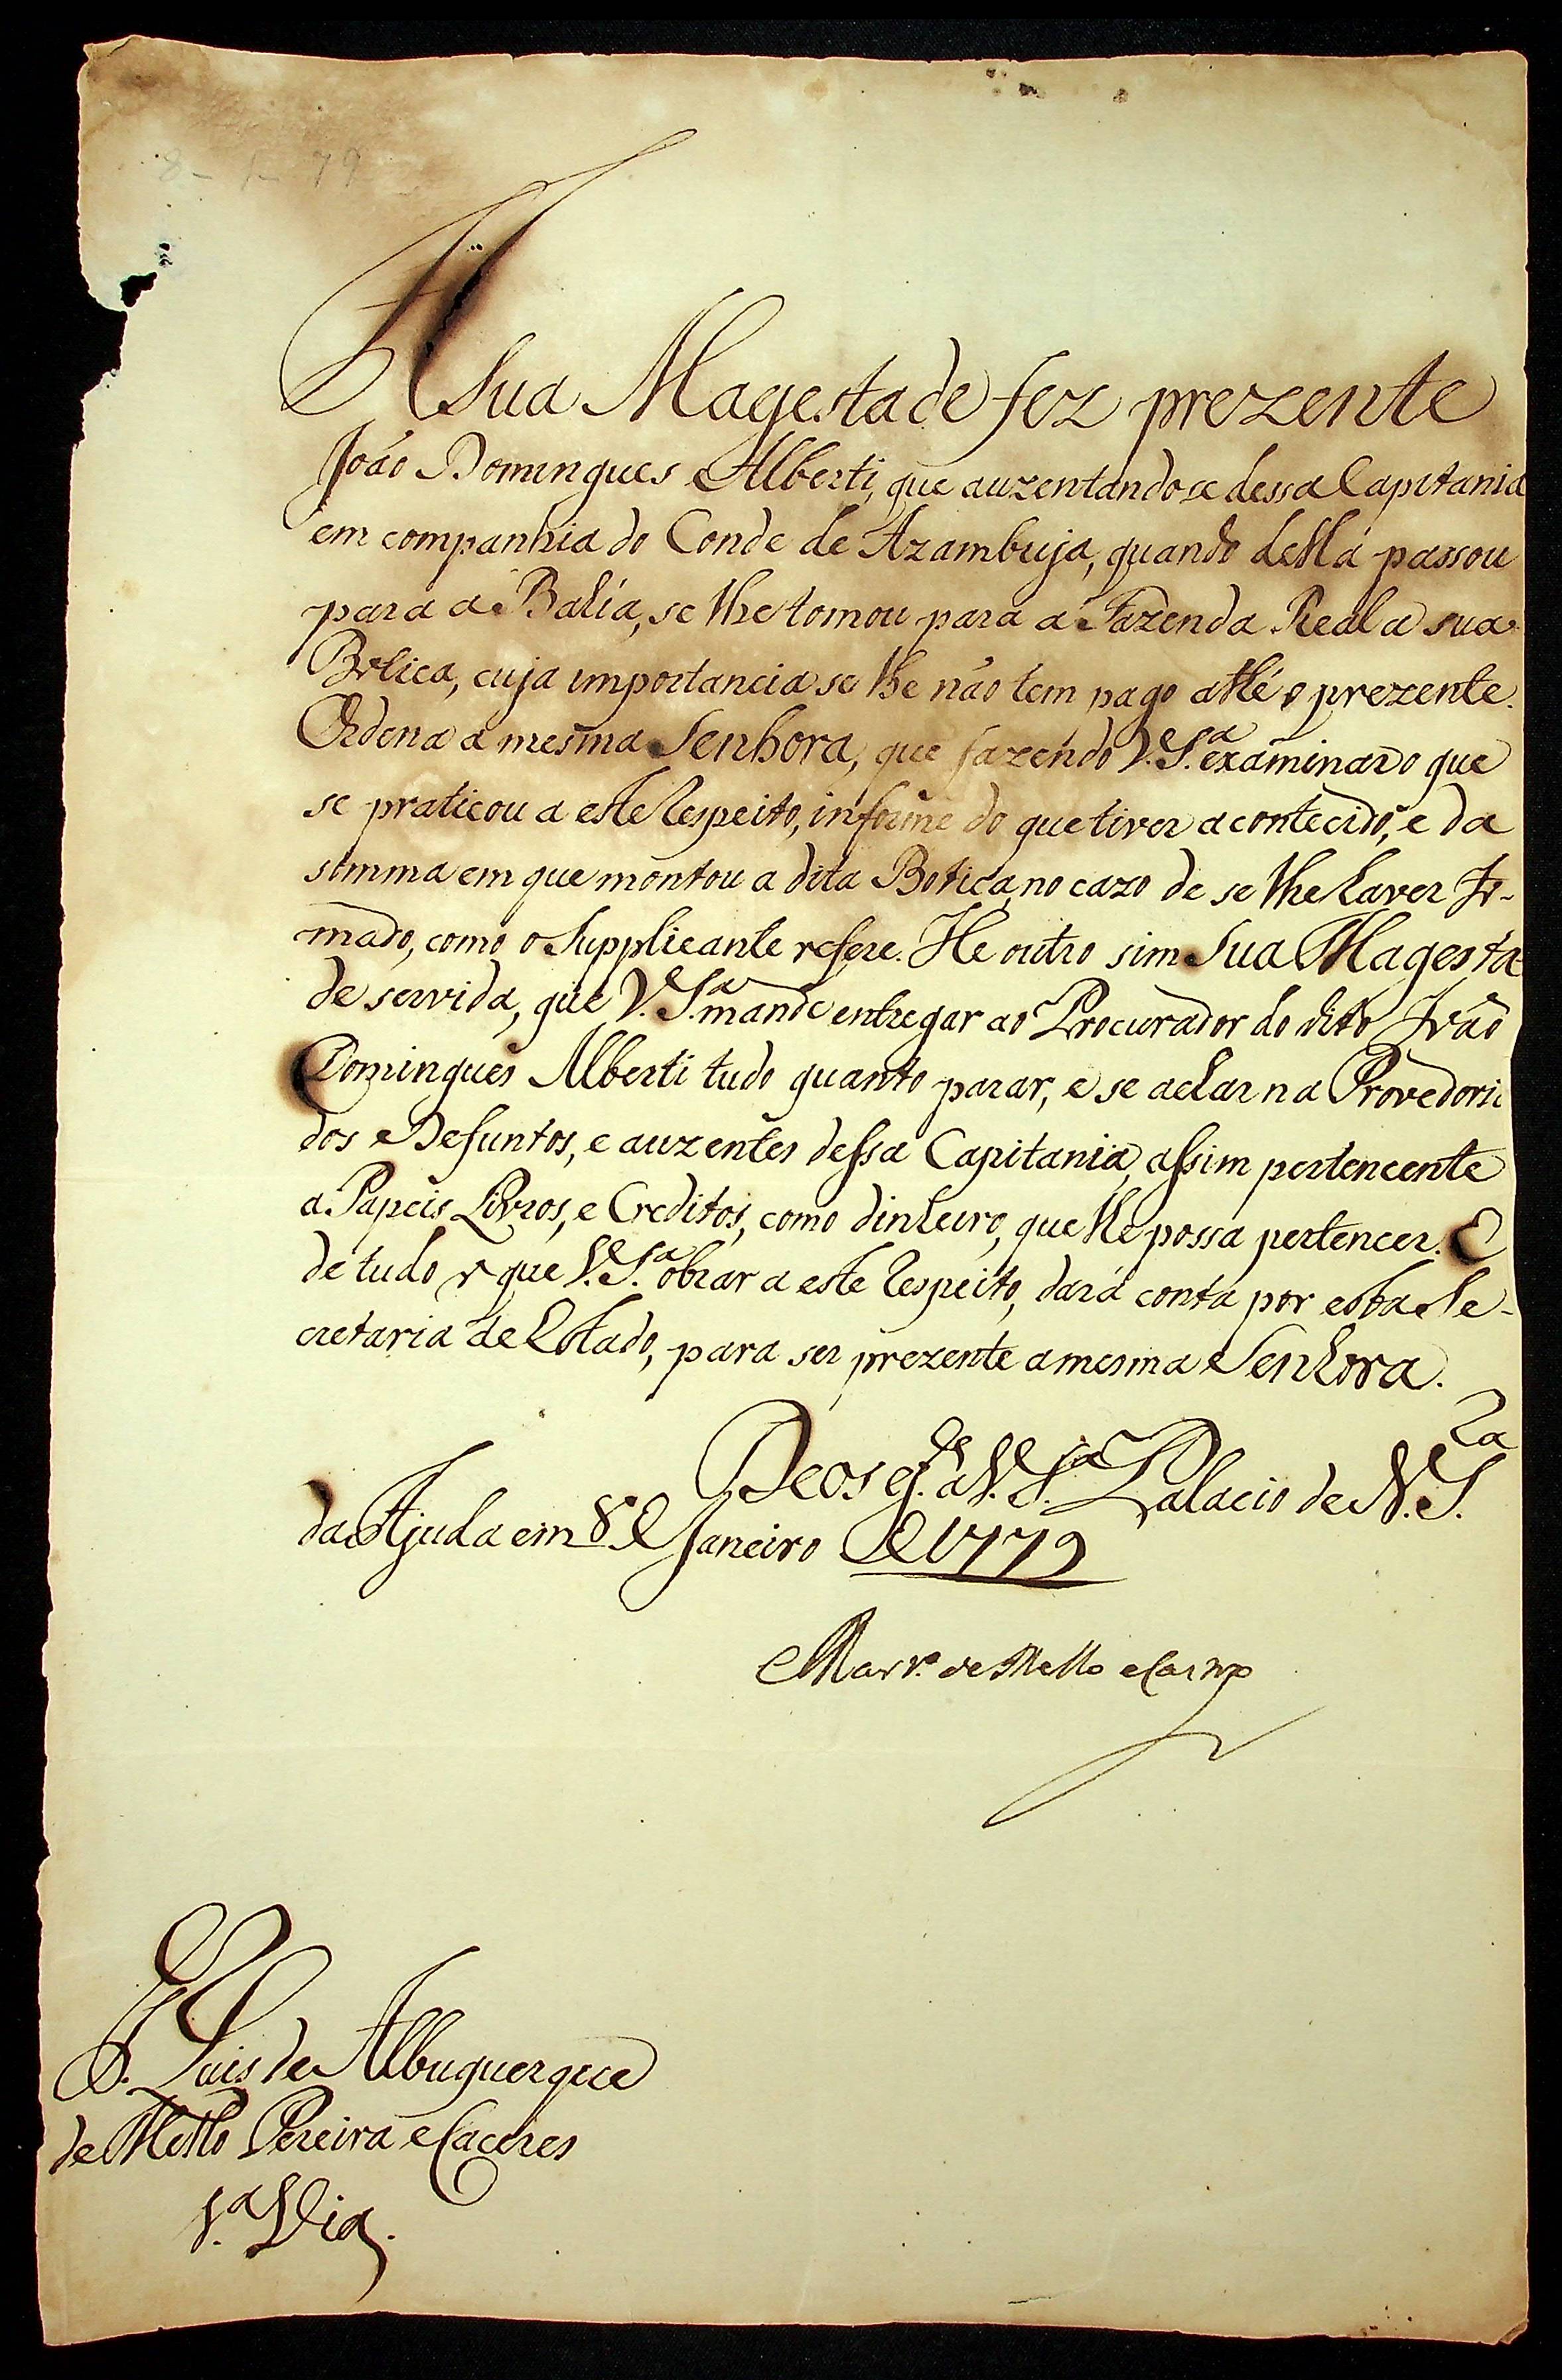 8 - 1 - 79
A Sua Magestade fez prezente
João Domingues Alberti, que auzentandose dessa Capitania
em companhia do Conde de Azambuja, quando della passou
para a Bahia, se lhe tomou para a Fazenda Real a sua
Botica, cuja importancia se lhe não tem pago athé o prezente.
Ordena a mesma Senhora, que fazendo V. S.ª examinar o que
se praticou a este respeito, informe do que tiver acontecido, e da
somma em que montou a dita Botica, no cazo de se lhe haver to-
mado, como o Supplicante refere. He outro sim Sua Magesta
de servida, que V. S.ª mande entregar ao Procurador do dito João
Domingues Alberti tudo quanto parar, e se achar na Provedoria
dos Defuntos, e auzentes dessa Capitania, assim pertencente
a Papeis Livros, e Creditos, como dinheiro, que lhe possa pertencer. E
de tudo o que V. S.ª obrar a este respeito, dará conta por esta Se-
cretaria de Estado, para ser prezente a mesma Senhora.
Deos g.de a V. S.ª Palacio de N. S.ra
da Ajuda em 8 de Janeiro de 1779
Mart.º de Mello e Castro
S.r Luis de Albuquerque
de Mello Pereira e Caceres
1.ª Via.